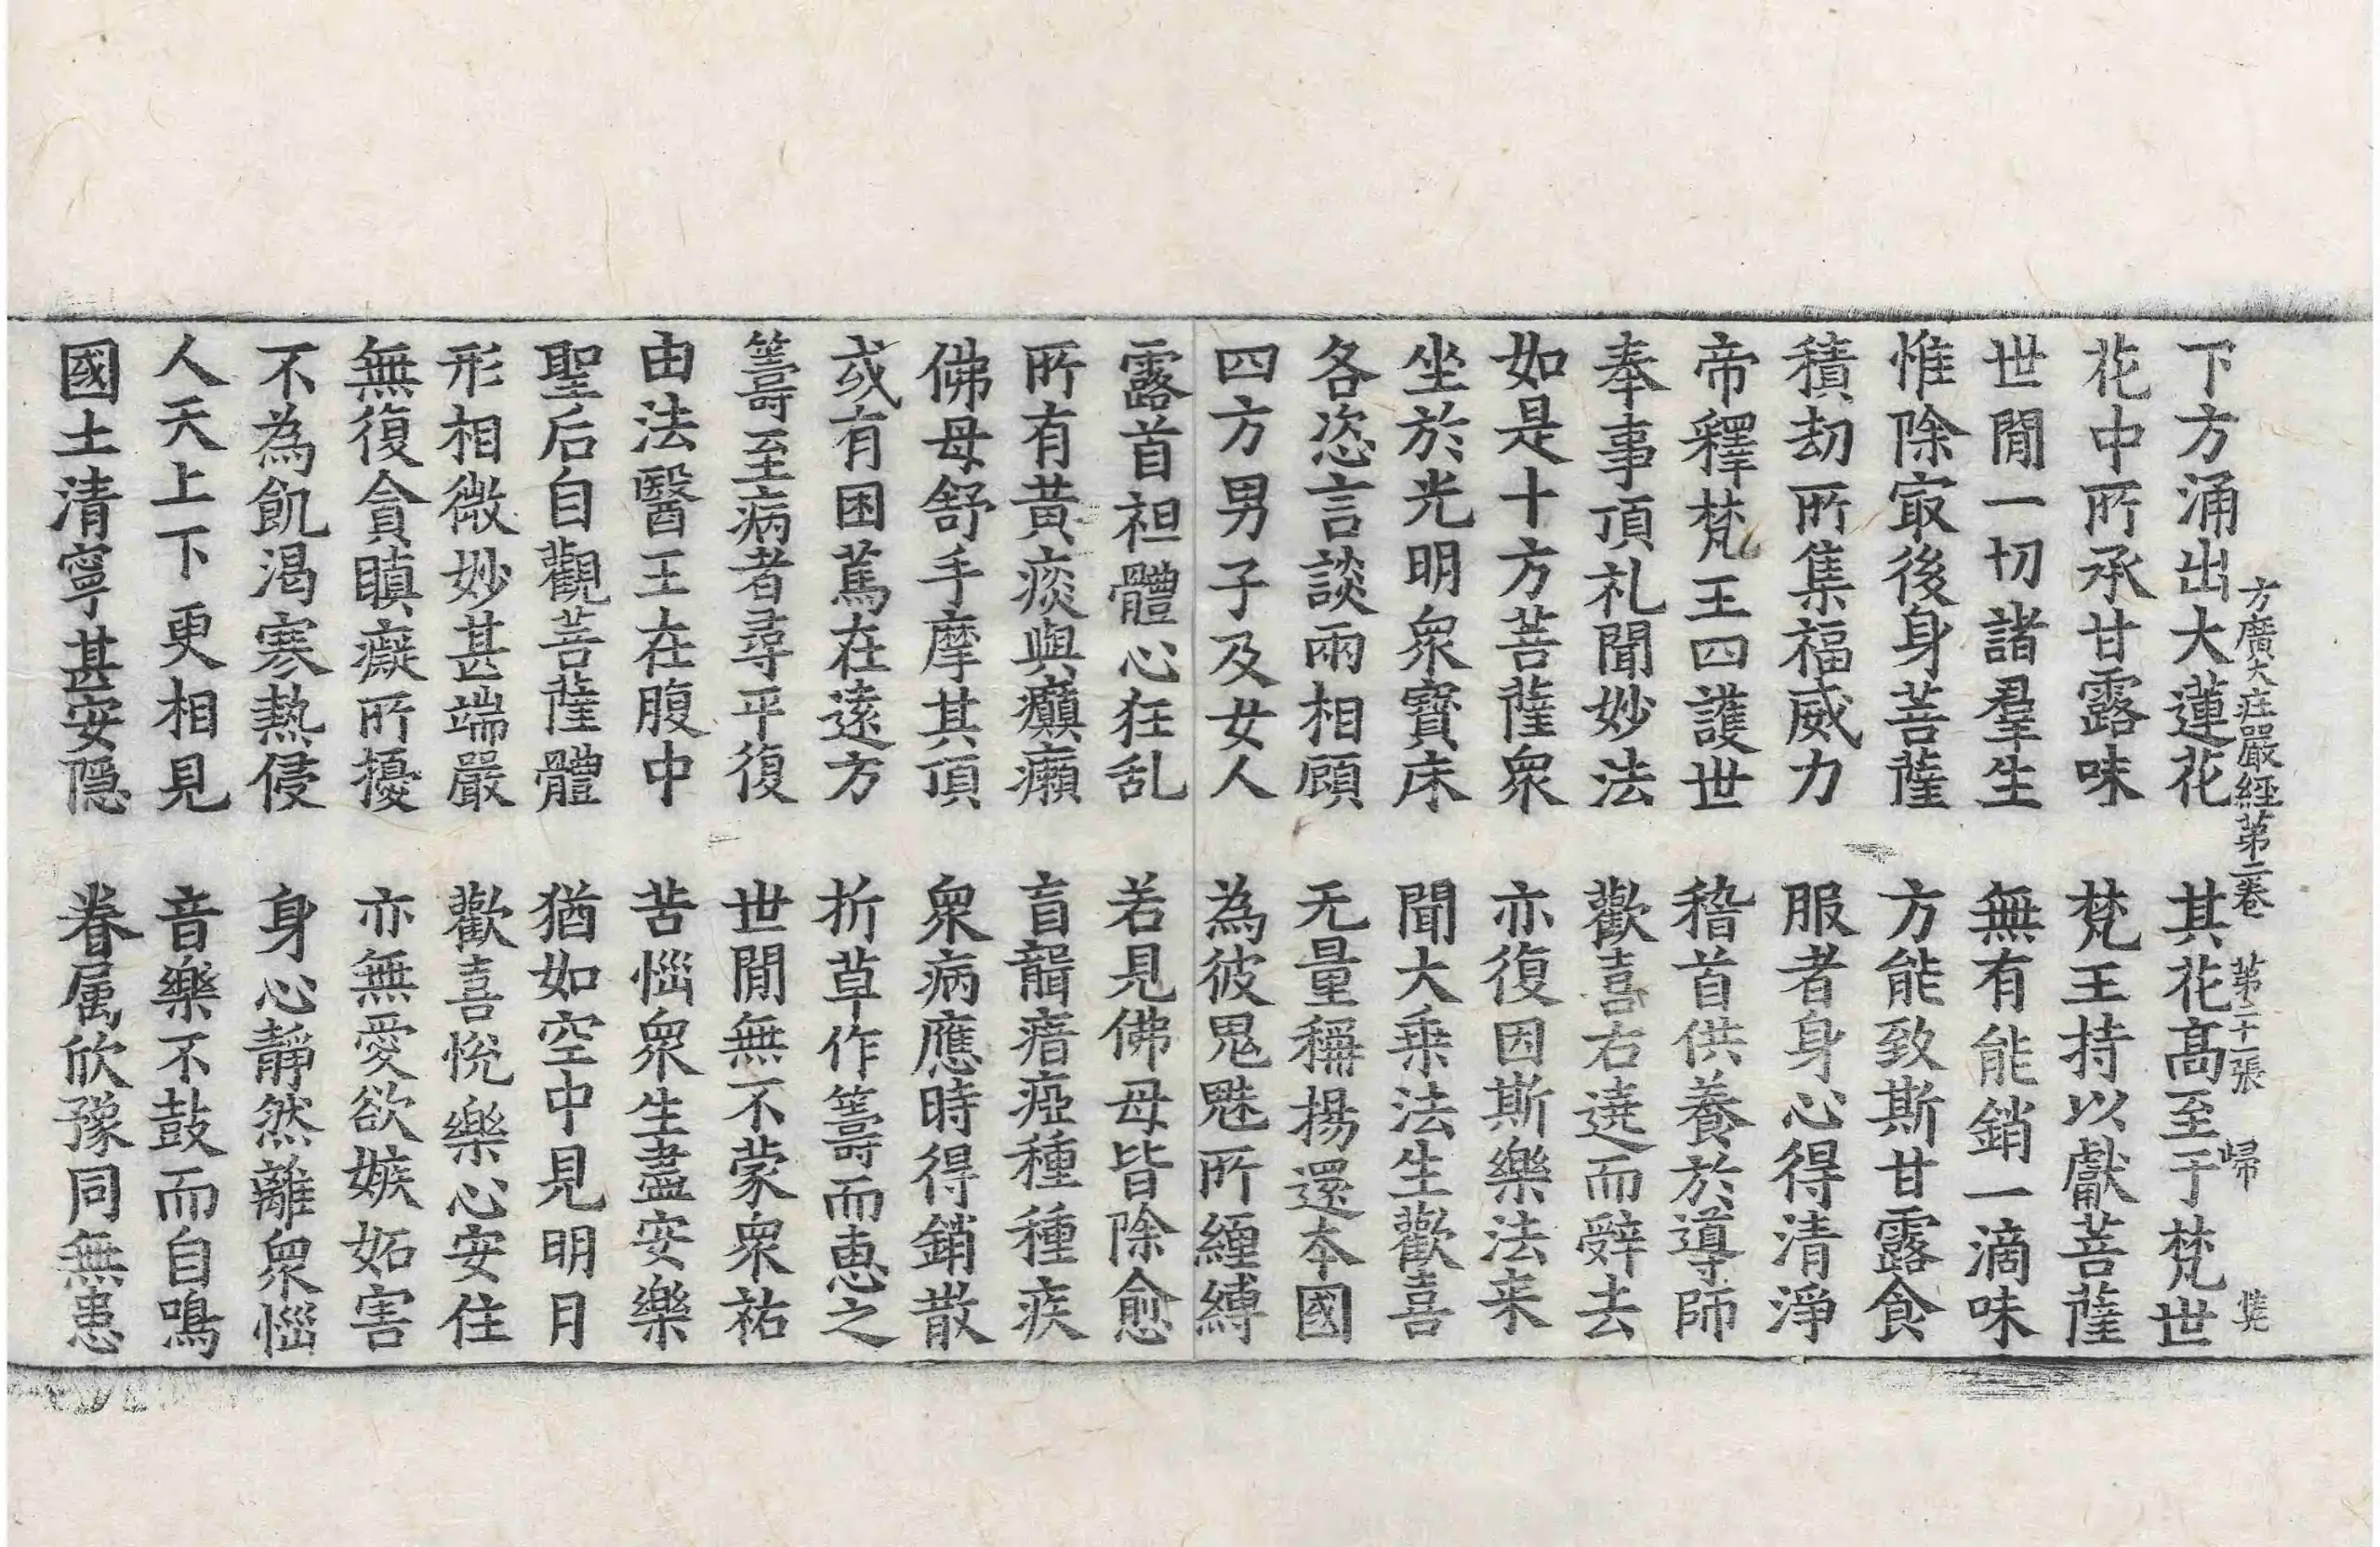 方廣大荘嚴經第二卷 第二十張 歸
下方涌出大蓮花 其花髙至于梵世
花中所承甘露味 梵王持以獻菩薩
世閒一切諸羣生 無有能銷一滴味
惟除冣後身菩薩 方能致斯甘露食
積劫所集福威力 服者身心得清淨
帝釋梵王四護世 稽首供養於導師
奉事頂礼聞妙法 歡喜右遶而辤去
如是十方菩薩衆 亦復因斯樂法来
坐於光明衆寶床 聞大乗法生歡喜
各恣言談兩相顧 无量稱揚還本國
四方男子及女人 為彼鬼魅所纏縛
露首袒體心狂乱 若見佛母皆除愈
所有黃痰與癲癩 盲聾瘖瘂種種疾
佛母舒手摩其頂 衆病應時得銷散
或有困篤在遠方 折草作籌而惠之
籌至病者尋平復 世閒無不蒙衆祐
由法醫王在腹中 苦惱衆生盡安樂
聖后自觀菩薩體 猶如空中見明月
形相微妙甚端嚴 歡喜悅樂心安住
無復貪瞋癡所擾 亦無愛欲嫉妬害
不為飢渴寒熱侵 身心靜然離衆惱
人天上下更相見 音樂不鼓而自鳴
國土清寧甚安隱 眷属欣豫同無患